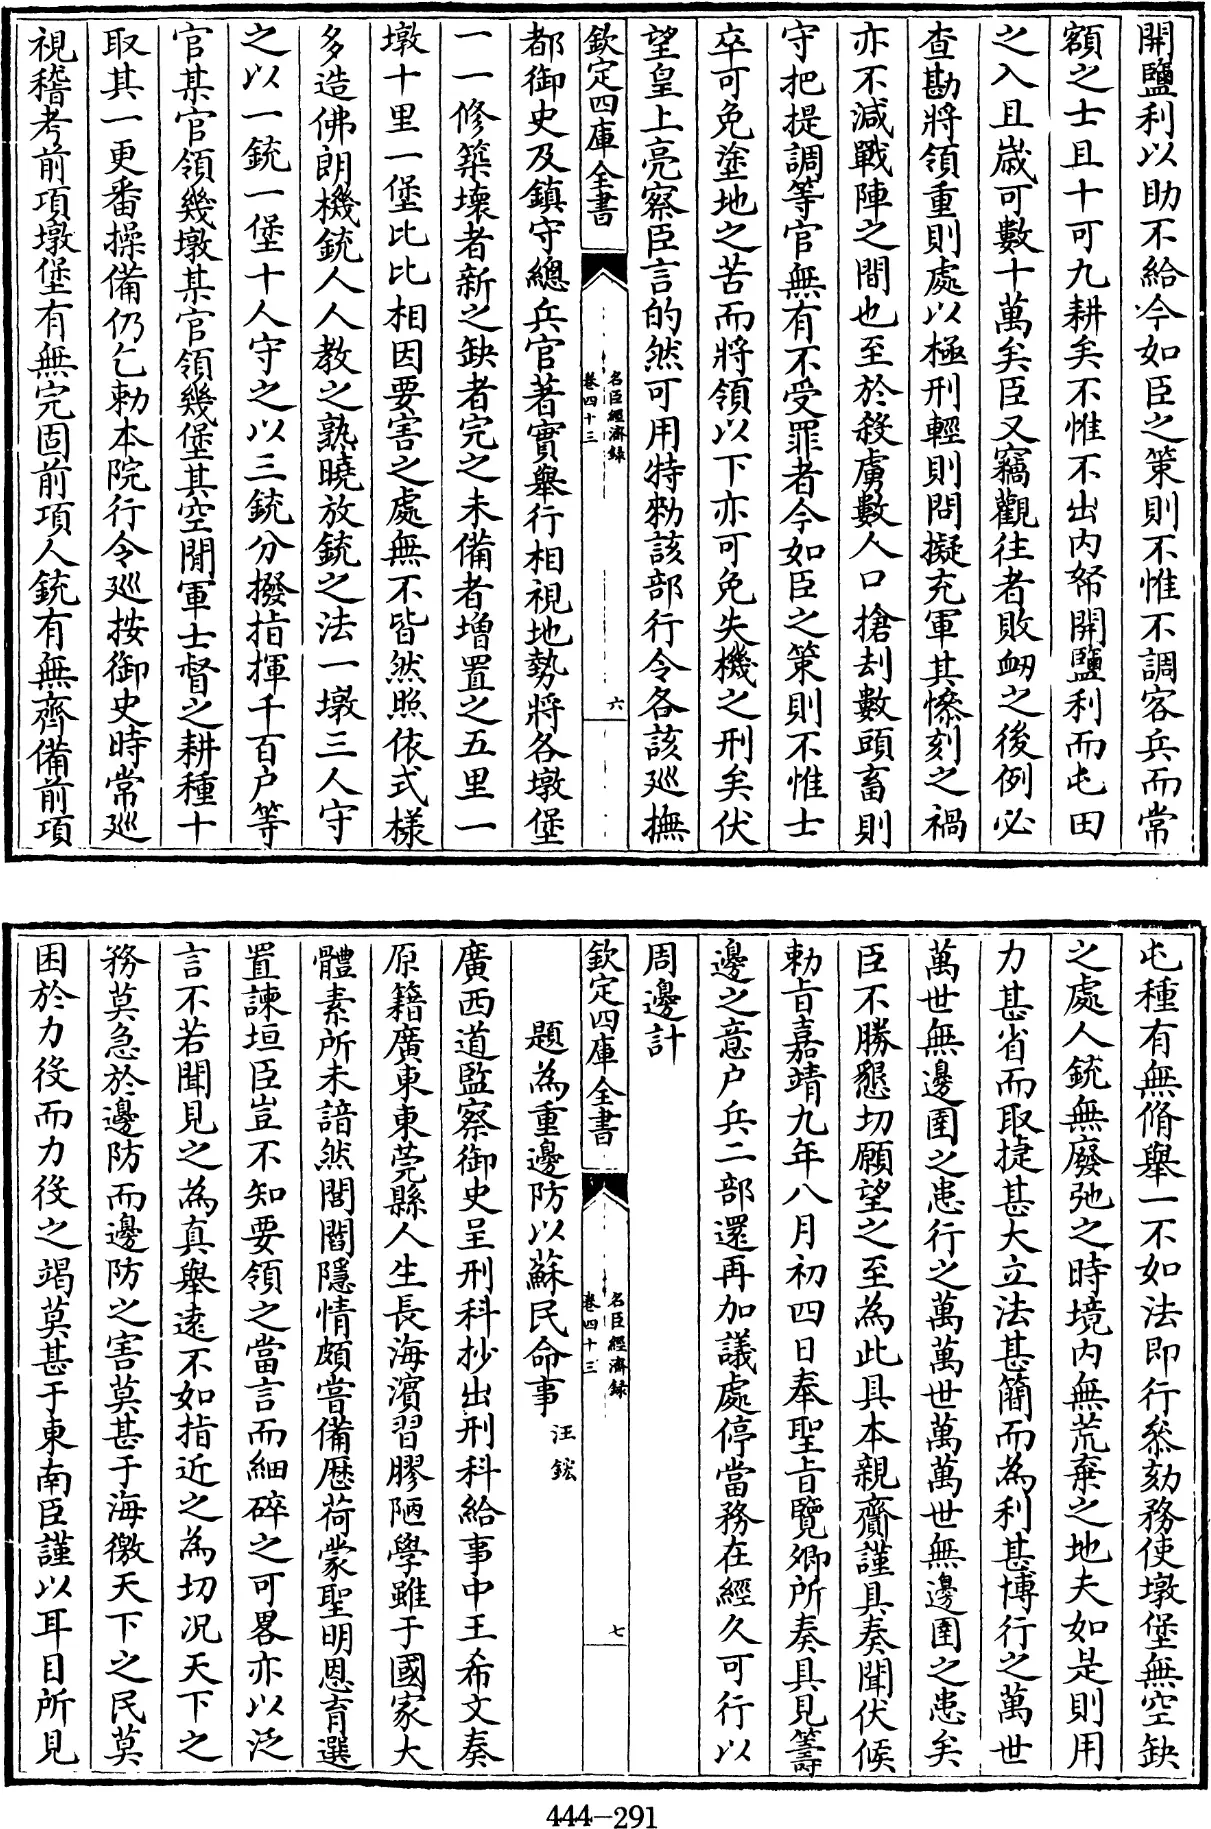 開鹽利以助不給今如臣之策則不惟不調客兵而常
額之士且十可九耕矣不惟不出内帑開鹽利而屯田
之入且歳可數十萬矣臣又竊觀往者敗衂之後例必
查勘將領重則處以極刑輕則問擬充軍其慘刻之禍
亦不減戰陣之間也至於殺虜數人口搶刦數頭畜則
守把提調等官無有不受罪者今如臣之策則不惟士
卒可免塗地之苦而將領以下亦可免失機之刑矣伏
望皇上亮察臣言的然可用特勑該部行令各該廵撫
欽定四庫全書
名臣經濟録
卷四十三
六
都御史及鎮守總兵官著實舉行相視地勢將各墩堡
一一修築壞者新之缺者完之未備者增置之五里一
墩十里一堡比比相因要害之處無不皆然照依式樣
多造佛朗機銃人人教之熟曉放銃之法一墩三人守
之以一銃一堡十人守之以三銃分撥指揮千百户等
官某官領幾墩某官領幾堡其空閒軍士督之耕種十
取其一更番操備仍乞勑本院行令廵按御史時常廵
視稽考前項墩堡有無完固前項人銃有無齊備前項
屯種有無脩舉一不如法即行叅劾務使墩堡無空缺
之處人銃無廢弛之時境内無荒棄之地夫如是則用
力甚省而取捷甚大立法甚簡而為利甚博行之萬世
萬世無邊圉之患行之萬萬世萬萬世無邊圉之患矣
臣不勝懇切願望之至為此具本親齎謹具奏聞伏候
勅旨嘉靖九年八月初四日奉聖旨覽卿所奏具見籌
邊之意户兵二部還再加議處停當務在經久可行以
周邊計
欽定四庫全書
名臣經濟録
卷四十三
七
題為重邊防以蘇民命事 汪鋐
廣西道監察御史呈刑科抄出刑科給事中王希文奏
原籍廣東東莞縣人生長海濱習膠陋學雖于國家大
體素所未諳然閭閻隱情頗嘗備歴荷蒙聖明恩育選
置諫垣臣豈不知要領之當言而細碎之可畧亦以泛
言不若聞見之為真舉逺不如指近之為切况天下之
務莫急於邊防而邊防之害莫甚于海徼天下之民莫
困於力役而力役之竭莫甚于東南臣謹以耳目所見
444-291